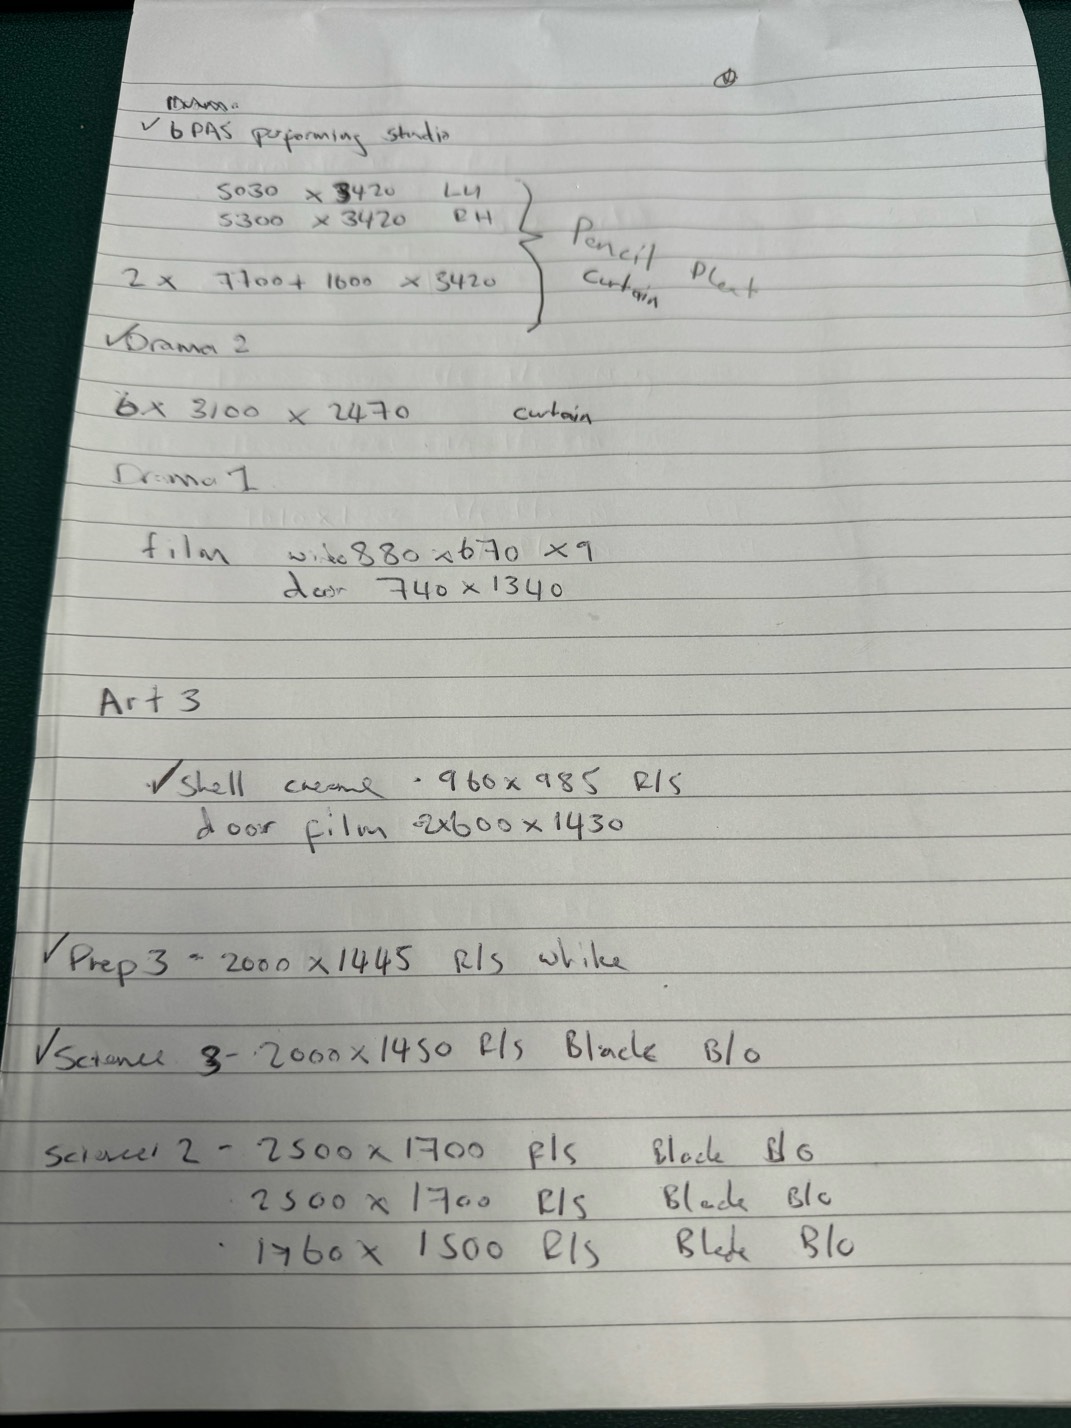 ✓ 6 PAS performing studio
5030 x 3420 LH
5300 x 3420 RH
2 x 7700 + 1600 x 3420
Pencil Pleat
Curtain
✓ Drama 2
6 x 3100 x 2470 curtain
Drama 1
film wide 880 x 670 x 9
door 740 x 1340
Art 3
✓ Shell creame · 960 x 985 R/S
door film 2x600 x 1430
✓ Prep 3 - 2000 x 1445 R/S white
✓ Science 3 - 2000 x 1450 R/S Black B/O
Science 2 - 2500 x 1700 R/S Black B/O
2500 x 1700 R/S Black B/O
· 1760 x 1500 R/S Black B/O